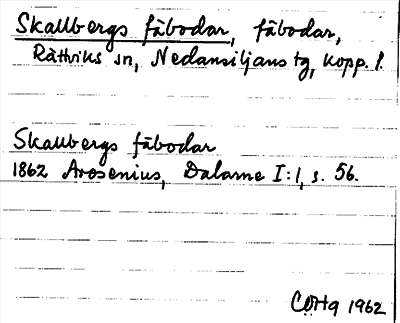 Skallbergs fäbodar, fäbodar,
Rättviks sn, Nedansiljans tg, Kopp. l.
Skallbergs fäbodar
1862 Arosenius, Dalarne I:1, s. 56.
1962